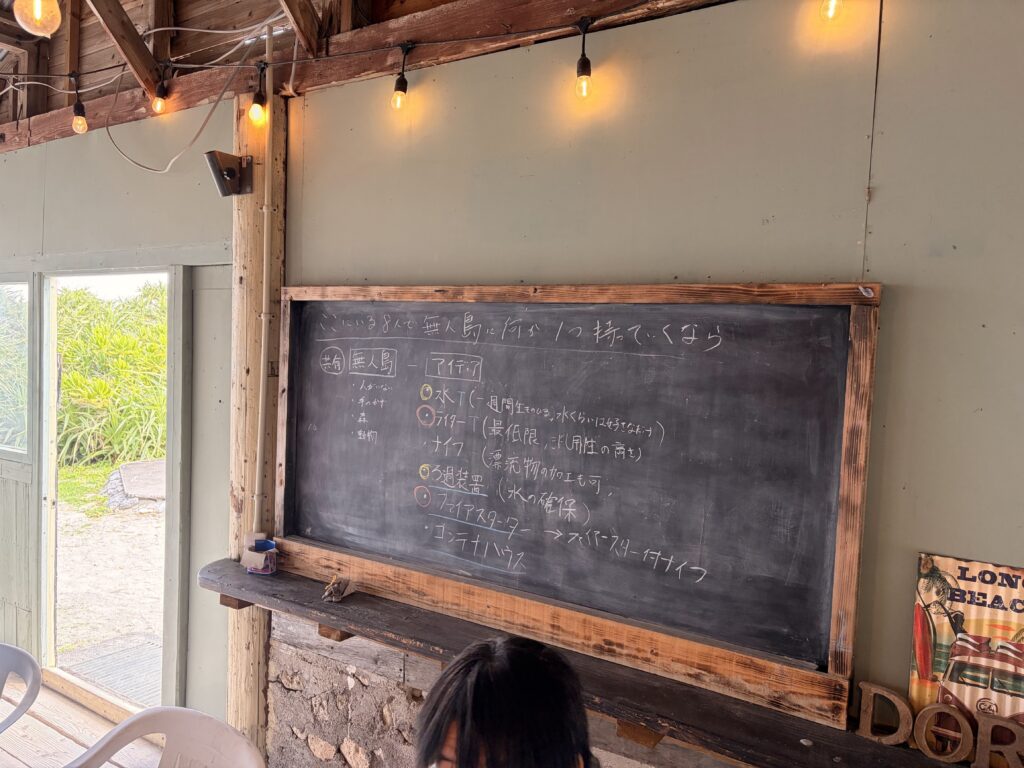 ここにいる8人で無人島に何か1つ持っていくなら
共有 無人島 ー アイテム
・人がいない
・森
・動物
水 T (一週間生きのびる、水
ライター T (最低限、汎用性の高さ)
・ナイフ (漂流物の加工も可、
ろ過装置 (水の確保)
ファイアスターター → ファイヤースターター付ナイフ
・コンテナハウス
LONG
BEAC
DOR